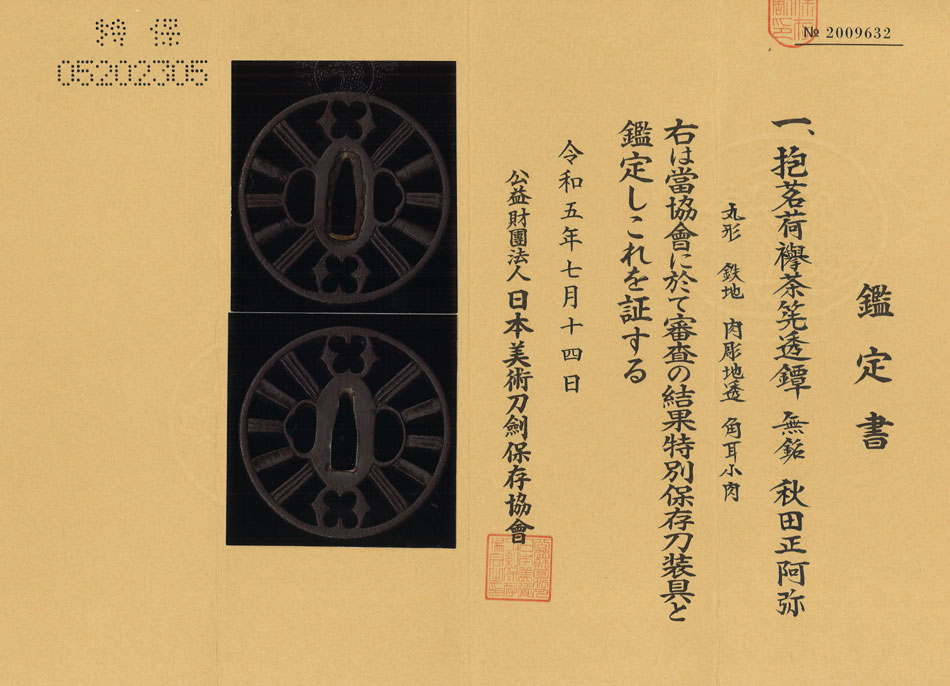 № 2009632
鑑定書
一、抱茗荷襷茶筅透鐔 無銘 秋田正阿弥
丸形 鉄地 肉彫地透 角耳小肉
右は當協會に於て審査の結果特別保存刀装具と
鑑定しこれを証する
令和五年七月十四日
公益財團法人 日本美術刀劍保存協會
特保
05202305